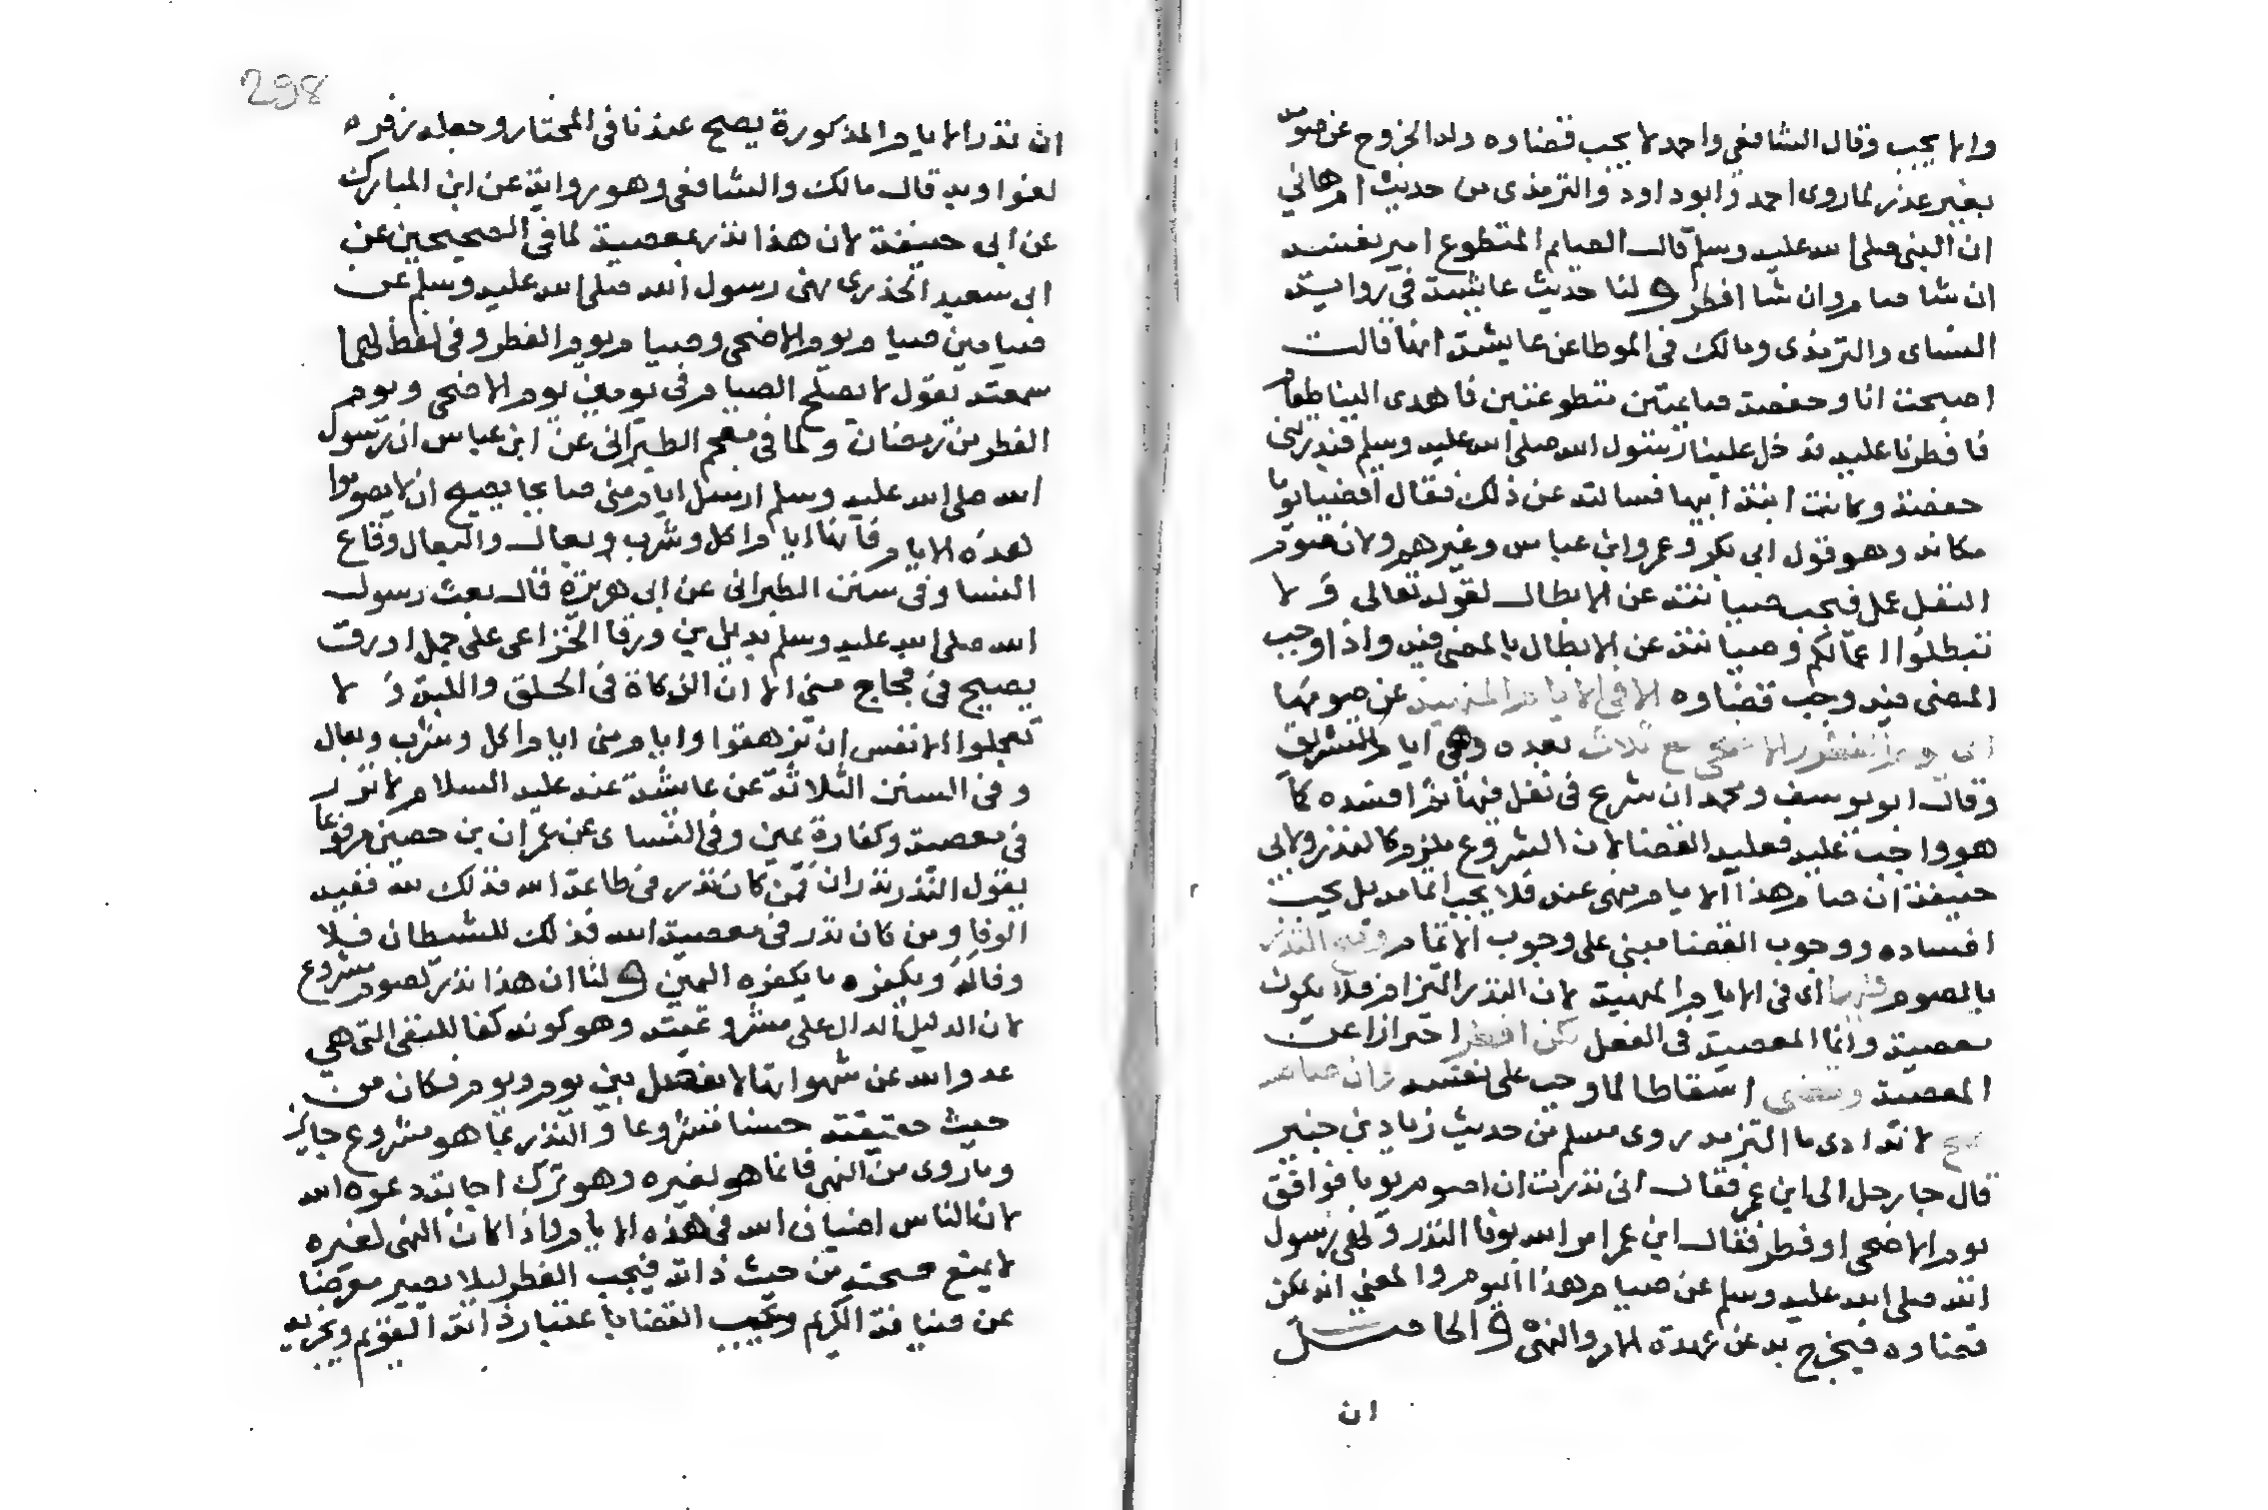 وانما يجب وقال الشافعي واحمد لا يجب قضاوه وله الخروج عن صومه
بغير عذر لما روى احمد وابو داود والترمذي من حديث ام هاني
ان النبي صلى الله عليه وسلم قال الصايم المتطوع امير نفسه
ان شا صام وان شا افطر ولنا حديث عايشة في رواية
النساي والترمذي ومالك في الموطا عن عايشة انها قالت
اصبحت انا وحفصة صايمتين متطوعتين فاهدى الينا طعام
فافطرنا عليه فدخل علينا رسول الله صلى الله عليه وسلم فبدرتني
حفصة وكانت ابنة ابيها فسالته عن ذلك فقال اقضيا يوما
مكانه وهو قول ابي بكر وعمر وابن عباس وغيرهم ولان صوم
النفل عمل فيجب صيانته عن الابطال لقوله تعالى و لا
تبطلوا اعمالكم وصيانته عن الابطال بالمضي فيه واذا وجب
المضي فيه وجب قضاوه الا في الايام المنهية عن صومها
الاضحى مع ثلاث بعده وهي ايام التشريق
وقال ابو يوسف ومحمد ان شرع في نفل فيها ثم افسده كما
هو واجب عليه فعليه القضا لان الشروع ملزم كالنذر ولابي
حنيفة ان صام هذا الايام منهي عنه فلا يجب اتمامه بل يجب
افساده ووجوب القضا مبني على وجوب الاتمام وصح النذر
بالصوم فيها اي في الايام المنهية لان النذر التزام فلا يكون
معصية وانما المعصية في الفعل لكن افطر احترازا عن
المعصية وقضى اسقاطا لما وجب على نفسه وان صامه
صح لانه ادى ما التزمه روى مسلم من حديث زياد بن جبير
قال جا رجل الى ابن عمر فقال اني نذرت ان اصوم يوما فوافق
يوم الاضحى او فطر فقال ابن عمر امر الله بوفا النذر ونهى رسول
الله صلى الله عليه وسلم عن صيام هذا اليوم والمعنى انه يمكن
قضاوه فيخرج به عن عهدة الامر والنهي والحاصل
ان
298
ان نذر الايام المذكورة يصح عندنا في المختار وجعله زفر
لغوا وبه قال مالك والشافعي وهو رواية عن ابن المبارك
عن ابي حنيفة لان هذا نذر بمعصية لما في الصحيحين عن
ابي سعيد الخدري نهى رسول الله صلى الله عليه وسلم عن
صيامين صيام يوم الاضحى وصيام يوم الفطر وفي لفظ لهما
سمعته يقول لا يصلح الصيام في يومين يوم الاضحى ويوم
الفطر من رمضان ولما في معجم الطبراني عن ابن عباس ان رسول
الله صلى الله عليه وسلم ارسل ايام منى صايحا يصيح ان لا يصوموا
هذه الايام فانها ايام اكل وشرب وبعال والبعال وقاع
النسا وفي سنن الطبراني عن ابي هريرة قال بعث رسول
الله صلى الله عليه وسلم بديل بن ورقا الخزاعي على جمل اورق
يصيح في فجاج منى الا ان الذكاة في الحلق واللبة و لا
تعجلوا الانفس ان تزهقوا وايام منى ايام اكل وشرب وبعال
وفي السنن الثلاثة عن عايشة عنه عليه السلام لا نذر
في معصية وكفارة يمين وفي النساي عن عمران بن حصين مرفوعا
يقول النذر نذران فمن كان نذر في طاعة الله فذلك لله ففيه
الوفا ومن كان نذر في معصية الله فذلك للشيطان فلا
وفا له ويكفره ما يكفره اليمين ولنا ان هذا نذر لصوم مشروع
لان الدليل الدال على مشروعيته وهو كونه كفا للنفس التي هي
عدو الله عن شهواتها لا يفصل بين يوم ويوم فكان من
حيث حقيقته حسنا مشروعا والنذر بما هو مشروع جايز
وما روى من النهي فانما هو لغيره وهو ترك اجابة دعوة الله
لان الناس اضياف الله في هذه الايام واذا كان النهي لغيره
لا يمنع صحته من حيث ذاته فيجب الفطر ليلا يصير معرضا
عن ضيافة الكريم ويجب القضا باعتبار ذاته القويم وتحريه